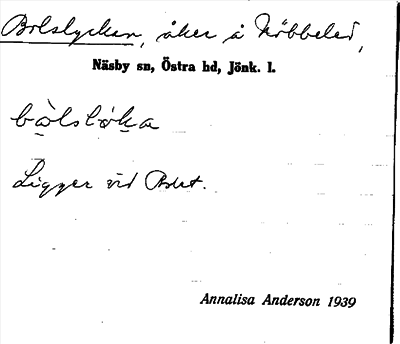 Bolslyckan, åker å Nöbbeled,
Näsby sn, Östra hd, Jönk. l.
bòlslöka
Ligger vid Bolet.
Annalisa Anderson 1939